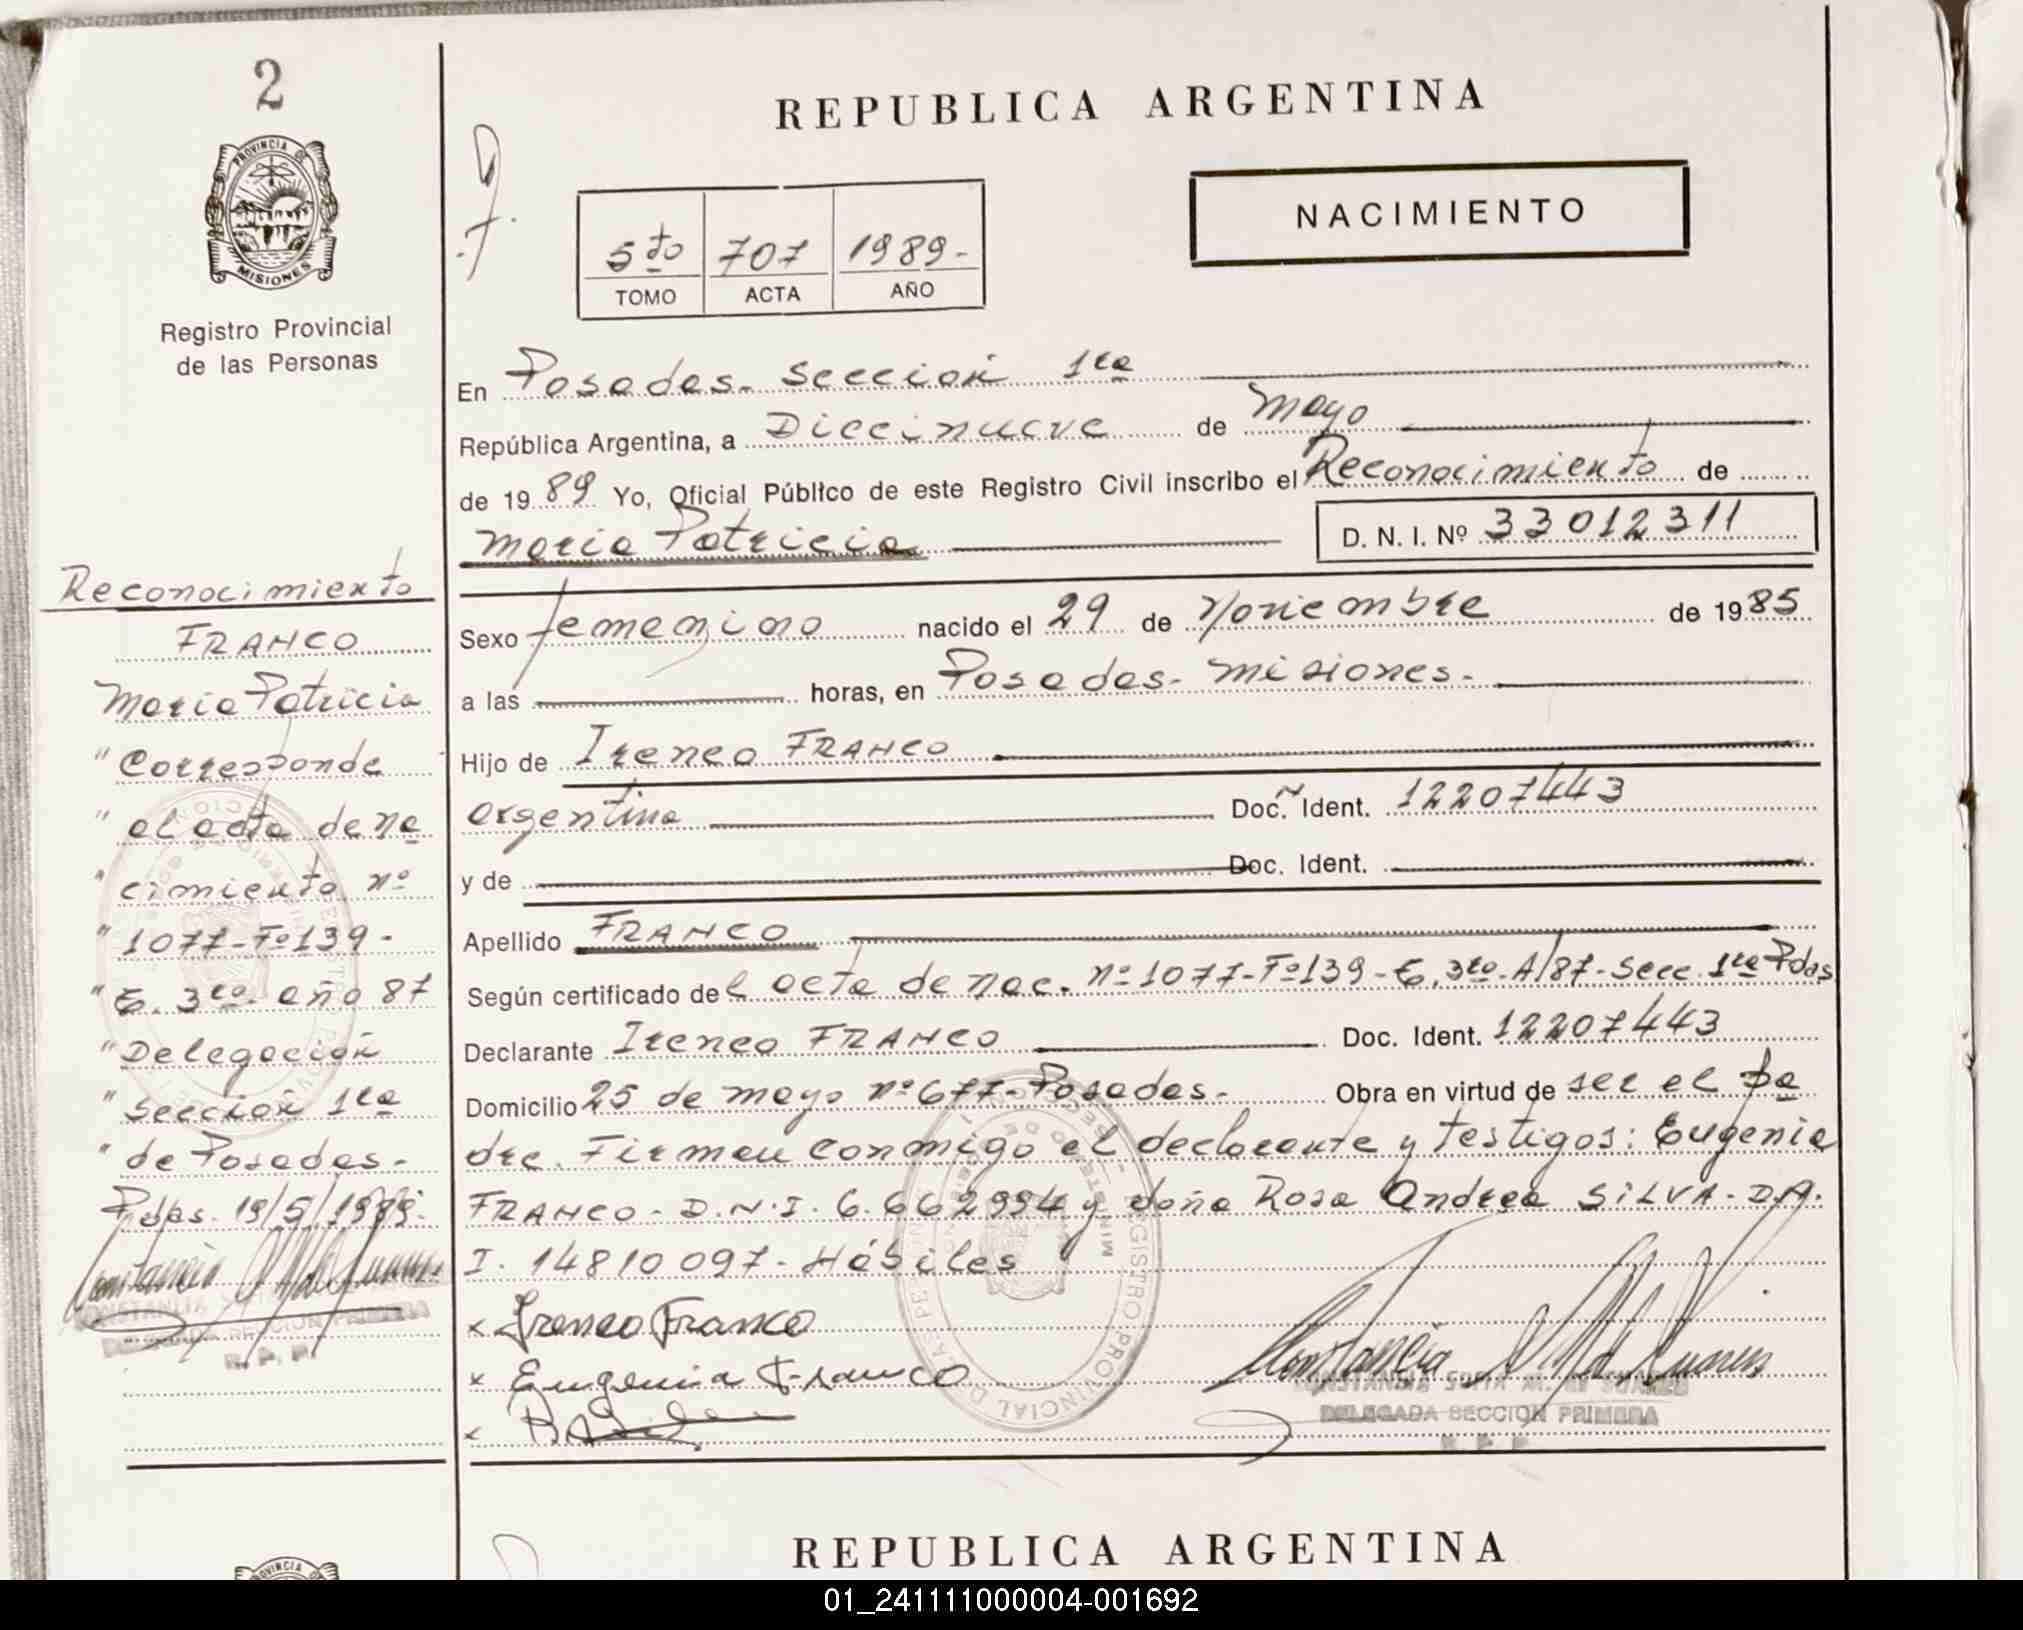 2
PROVINCIA DE
MISIONES
Registro Provincial
de las Personas
Reconocimiento
FRANCO
Maria Patricia
" Corresponde
" al acta de na
" cimiento nº
" 1077-Fº139-
" T. 3ro. año 87
" Delegación
" Sección 1ra
" de Posadas-
Pdas. 19/5/1989.
CONSTANCIA
DELEGADA SECCION PRIMERA
R. P. P.
REPUBLICA ARGENTINA
NACIMIENTO
5to 707 1989-
TOMO ACTA AÑO
En Posadas. Sección 1ra
República Argentina, a Diecinueve de Mayo
de 1989 Yo, Oficial Público de este Registro Civil inscribo el Reconocimiento de
Maria Patricia D. N. I. Nº 33012311
Sexo femenino nacido el 29 de Noviembre de 1985
a las horas, en Posadas- Misiones-
Hijo de Ireneo FRANCO
argentino Doc. Ident. 12207443
y de Doc. Ident.
Apellido FRANCO
Según certificado del acta de nac. nº 1077-Fº139-T. 3ro-A/87-Secc. 1ra Pdas
Declarante Ireneo FRANCO Doc. Ident. 12207443
Domicilio 25 de mayo nº 677-Posadas- Obra en virtud de ser el pa
dre. Firman conmigo el declarante y testigos: Eugenia
FRANCO- D.N.I. 6.662994 y doña Rosa Andrea SILVA- D.N.
I. 14810097- Hábiles
x Ireneo Franco
x Eugenia Franco
x
DELEGADA SECCION PRIMERA
R. P. P.
REPUBLICA ARGENTINA
01_241111000004-001692